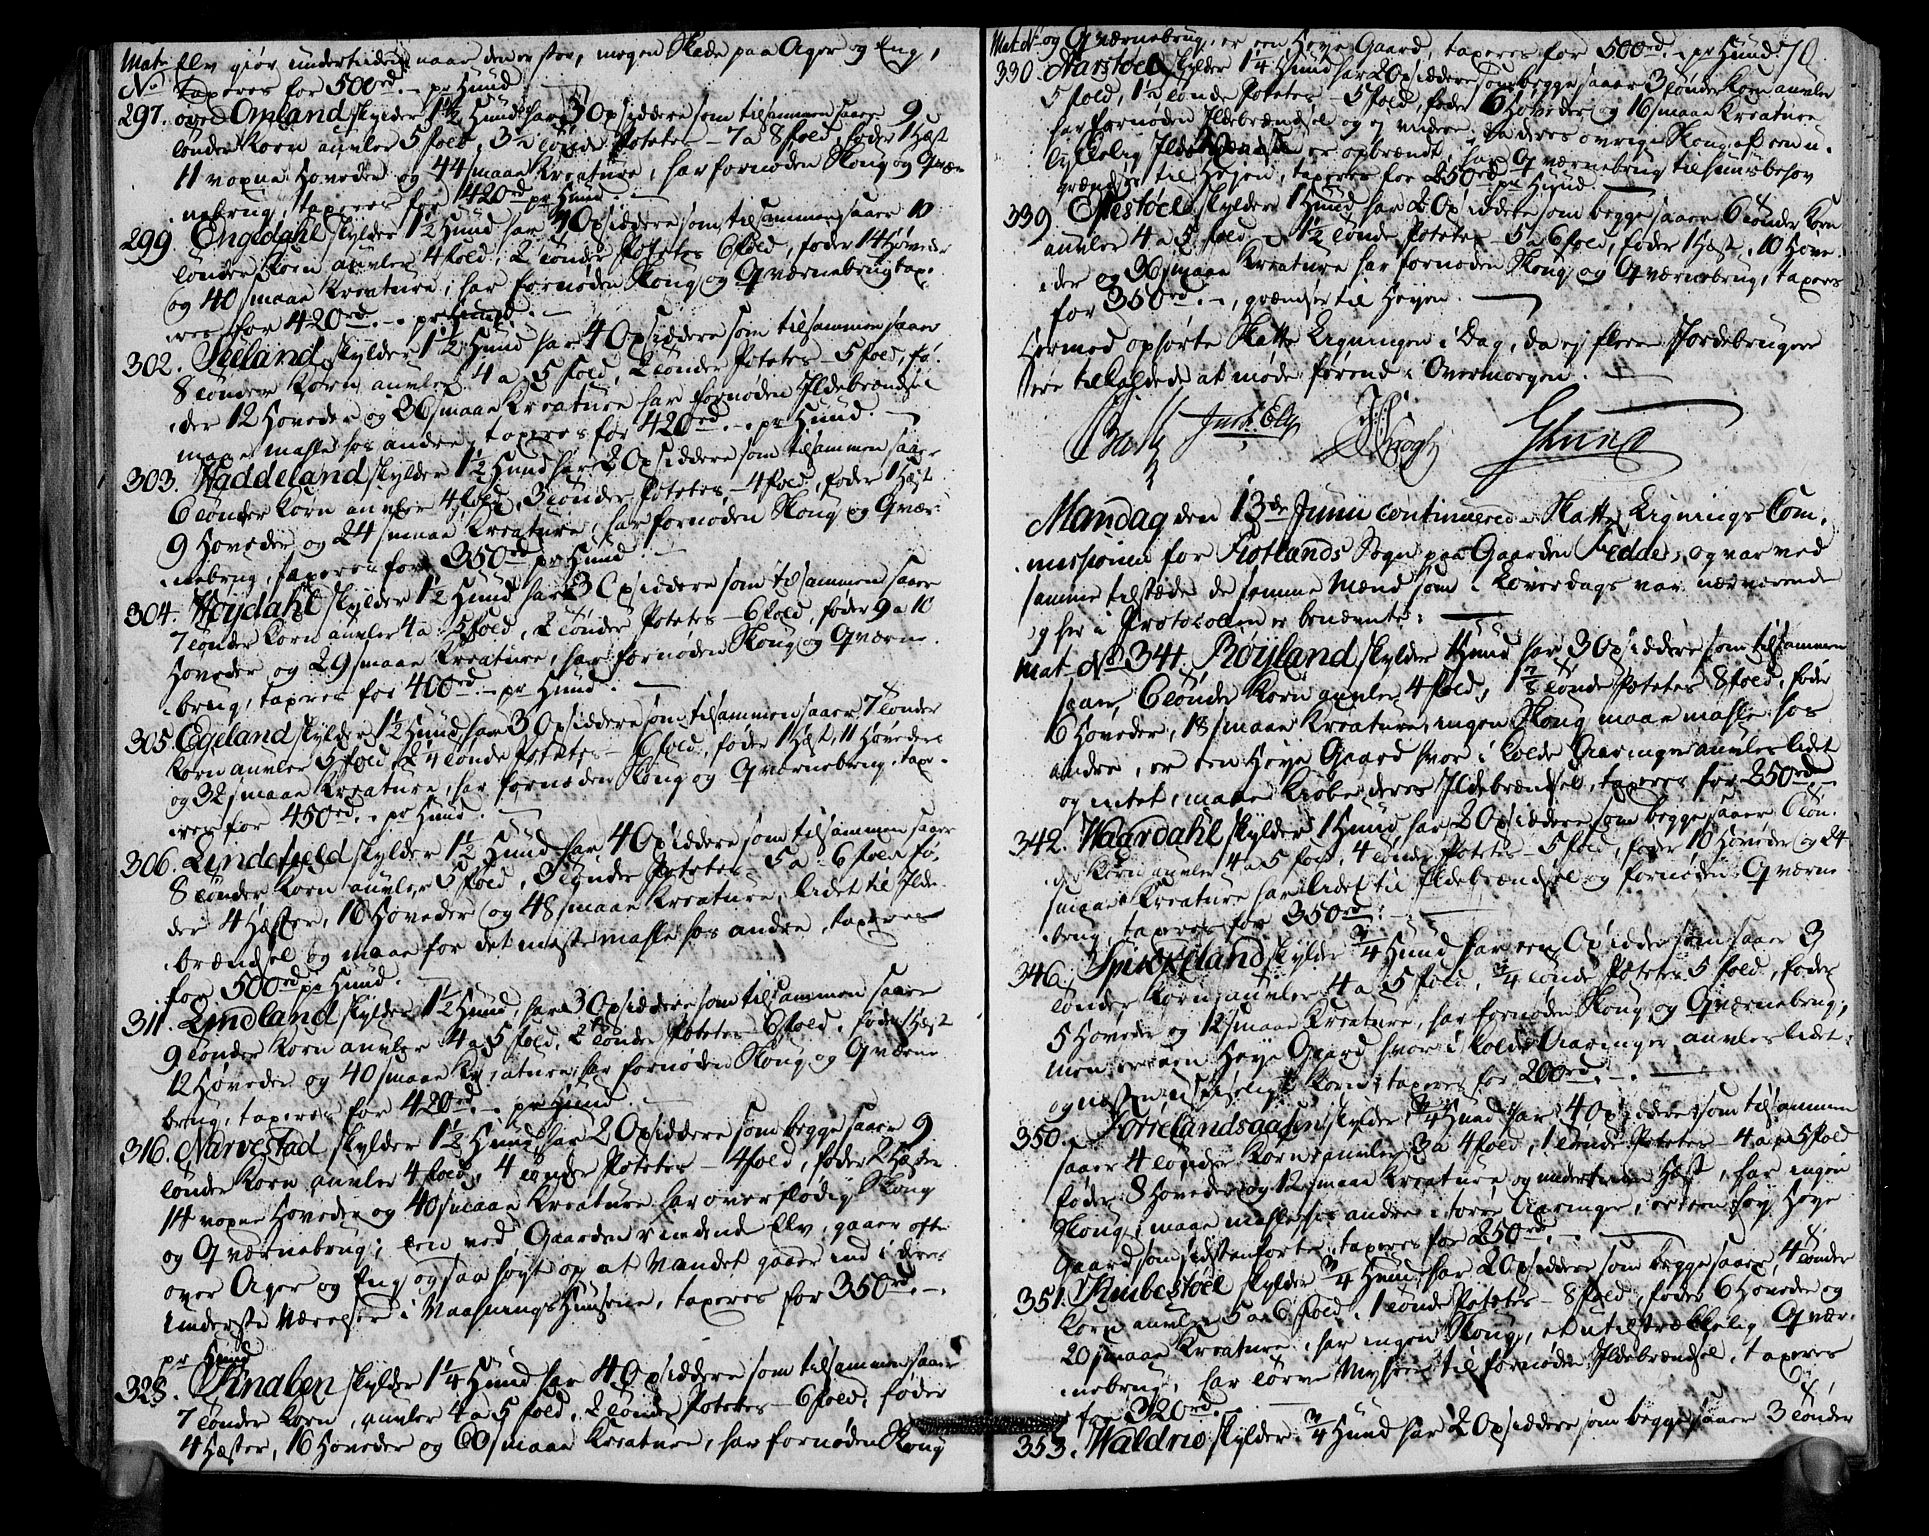 Mat: Elv giør undertiden naar den er stor, megen Skade paa Ager og Eng,
No taxeres for 500rd. - pr Hund.
297. Omland skylder 1 1/2 Hund har 3 Opsiddere som tilsammen saaer 9
tønder Korn auvler 5 fold, 3 tønde Potetes - 7 a 8 fold, føder 1 Hæst
11 voxne Høveder og 44 smaae Kreature, har fornøden Skoug og Qvær-
nebrug, taxeres for 420rd pr Hund.
299. Engedahl skylder 1 1/2 Hund har Opsiddere som tilsammen saaer 10
tønder Korn auvler 4 fold, 2 tønder Potetes 6 fold, føder 14 Høveder
og 40 smaae Kreature, har fornøden Skoug og Qværnebrug tax-
eres for 420rd. - pr Hund. -
302. Seeland skylder 1 1/2 Hund har 4 Opsiddere som tilsammen saaer
8 tønder Korn auvler 4 a 5 fold, 2 tønder Potetes - 5 fold, fø-
der 12 Høveder og 26 smaae Kreature har fornøden Ildebrændsel
maae mahle hos andre, taxeres for 420rd. - pr Hund. -
303. Haddeland skylder 1 1/2 Hund har 2 Opsiddere som tilsammen saaer
6 tønder Korn auvler 4 fold, 3 tønder Potetes - 4 fold, føder 1 Hæst
9 Høveder og 24 smaae Kreature, har fornøden Skoug og Qvær-
nebrug, taxeres for 350rd pr Hund
304. Høydahl skylder 1 1/2 Hund har 3 Opsiddere som tilsammen saaer
7 tønder Korn auvler 4 a 5 fold, 2 tønder Potetes - 6 fold, føder 9 a 10
Høveder og 29 smaae Kreature, har fornøden Skoug og Qværne-
brug, taxeres for 400rd. - pr Hund. -
305. Egeland skylder 1 1/2 Hund har 3 Opsiddere som tilsammen saaer 7 tønder
Korn auvler 5 fold, tønde Potetes - 6 fold, føder 1 Hæst, 11 Høveder
og 32 smaae Kreature, har fornøden Skoug og Qværnebrug, tax-
eres for 450rd. - pr Hund. -
306. Lindefjeld skylder 1 1/2 Hund har 4 Opsiddere som tilsammen saaer
8 tønder Korn auvler 5 fold, 3 tønder Potetes - 5 a 6 fold fø-
der 4 Hæster, 16 Høveder og 48 smaae Kreature, lidet til Ilde-
brændsel og maae for det meste mahle hos andre, taxeres
for 500rd pr Hund. -
311. Lindland skylder 1 1/2 Hund, har 3 Opsiddere som tilsammen saaer
9 tønder Korn auvler 4 a 5 fold, 2 tønder Potetes - 6 fold, føder 1 Hæst
12 Høveder og 40 smaae Kreature, har fornøden Skoug og Qværne
brug, taxeres for 420rd. - pr Hund. -
316. Narvestad skylder 1 1/2 Hund har 2 Opsiddere som begge saaer 9
tønder Korn auvler 4 fold, 4 tønder Potetes - 4 fold, føder 2 Hæster
14 voxne Høveder og 40 smaae Kreature har overflødig Skoug
og Qværnebrug; een ved Gaarden rindende Elv, gaaer ofte
over Ager og Eng ogsaa høyt op at Vandet gaaer ind i de
underste Værelser i Vaanings Husene, taxeres for 350rd. -
pr Hund
328. Knalen skylder 1 1/4 Hund har 4 Opsiddere som tilsammen saaer
7 tønder Korn, auvler 4 a 5 fold, 2 tønder Potetes - 6 fold, føder
4 Hæster, 16 Høveder og 60 smaae Kreature, har fornøden Skoug
Mat. No og Qværnebrug, er een Heye Gaard, taxeres for 500rd. - pr Hund. 70
330. Narstoel skylder 1 1/4 Hund har 2 Opsiddere som begge saaer 3 tønder Korn auvler
5 fold, 1 1/2 tønde Potetes - 5 fold, føder 6 Høveder og 16 smaae Kreature
har fornøden Ildebrændsel og ej videre, da deres øvrige Skoug af een u-
lykkelig Ildebrand er opbrændt, har Qværnebrug til huusbehov
grændser til Heyen, taxeres for 250rd pr Hund. -
339 Ellestoel skylder 1 Hund har 2 Opsiddere som begge saaer 6 tønder Korn
auvler 4 a 5 fold - 1 1/2 tønde Potetes - 5 a 6 fold, føder 1 Hæst, 10 Høve-
der og 36 smaae Kreature har fornøden Skoug og Qværnebrug, taxeres
for 350rd. -, grændser til Heyen. -
Hermed ophørte Skatte Ligningen i Dag, da ej flere Jordebrugere
ere tilkaldede at møde førend i Overmorgen. -
Mandag den 13de Junii continuerede Skatte Lignings Com-
missionen for Fiotlands Sogn paa Gaarden Fedde, og var ved
samme tilstæde de samme Mænd som i Løverdags var nærværende
og her i Protocollen er benævnte: -
Mat No 341. Røyland skylder 1 Hund har 3 Opsiddere som tilsammen
saaer 6 tønde Korn auvler 4 fold, 1 7/8 tønde Potetes 8 fold, føder
6 Høveder, 18 smaae Kreature, ingen Skoug maae mahle hos
andre, er een Heye Gaard hvor i kolde Aaringer auvles lidet
og intet, maae kiøbe deres Ildebrændsel, taxeres for 250rd. -
342. Haardahl skylder 1 Hund har 2 Opsiddere som begge saaer 6 tøn-
der Korn auvler 4 a 5 fold, 4 tønde Potetes - 5 fold, føder 10 Høveder og 24
smaae Kreature har lidet til Ildebrændsel og fornøden Qværne-
brug, taxeres for 350rd. -
346. Spirkeland skylder 3/4 Hund har een Opsidder som saaer 3
tønder Korn auvler 4 a 5 fold, 3/4 tønde Potetes 5 fold, føder
5 Høveder og 12 smaae Kreature, har fornøden Skoug og Qværnebrug,
men er een Heye Gaard hvor i kolde Aaringer auvles lidet
og næsten Korn, taxeres for 200rd. -
350. skylder 3/4 Hund har 4 Opsiddere som tilsammen
saaer 4 tønder Korn auvler 3 a 4 fold, 1 tønde Potetes 4 a 5 fold
føder 8 Høveder og 12 smaae Kreature og undertiden Hæst, har ingen
Skoug, maae mahle hos andre i tørre Aaringer, er een høy Heye
Gaard som sidstanførte, taxeres for 250rd. -
351. Knibestoel skylder 3/4 Hund har 2 Opsiddere som begge saaer 4 tønder
Korn auvler 5 a 6 fold, 1 tønde Potetes - 8 fold, føder 6 Høveder og
20 smaae Kreature, har ingen Skoug, et utilstrækkelig Qvær-
nebrug, har Tørve Myhrer til fornøden Ildebrændsel, taxeres
for 320rd. -
353. Waldrie skylder 3/4 Hund har 2 Opsiddere som begge saaer 3 tønder